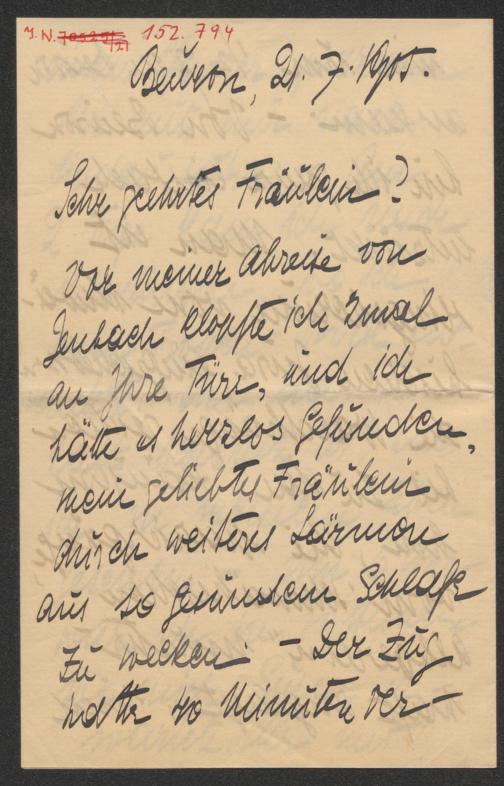 J.N. 152.794
Beuron, 21. 7. 1905.
Sehr geehrtes Fräulein?
Vor meiner Abreise von
Jenbach klopfte ich 2mal
an Ihre Türe, und ich
hätte es herzlos gefunden,
mein geliebtes Fräulein
durch weiteres Lärmen
aus so gesundem Schlafe
zu wecken. – Der Zug
hatte 40 Minuten Ver-